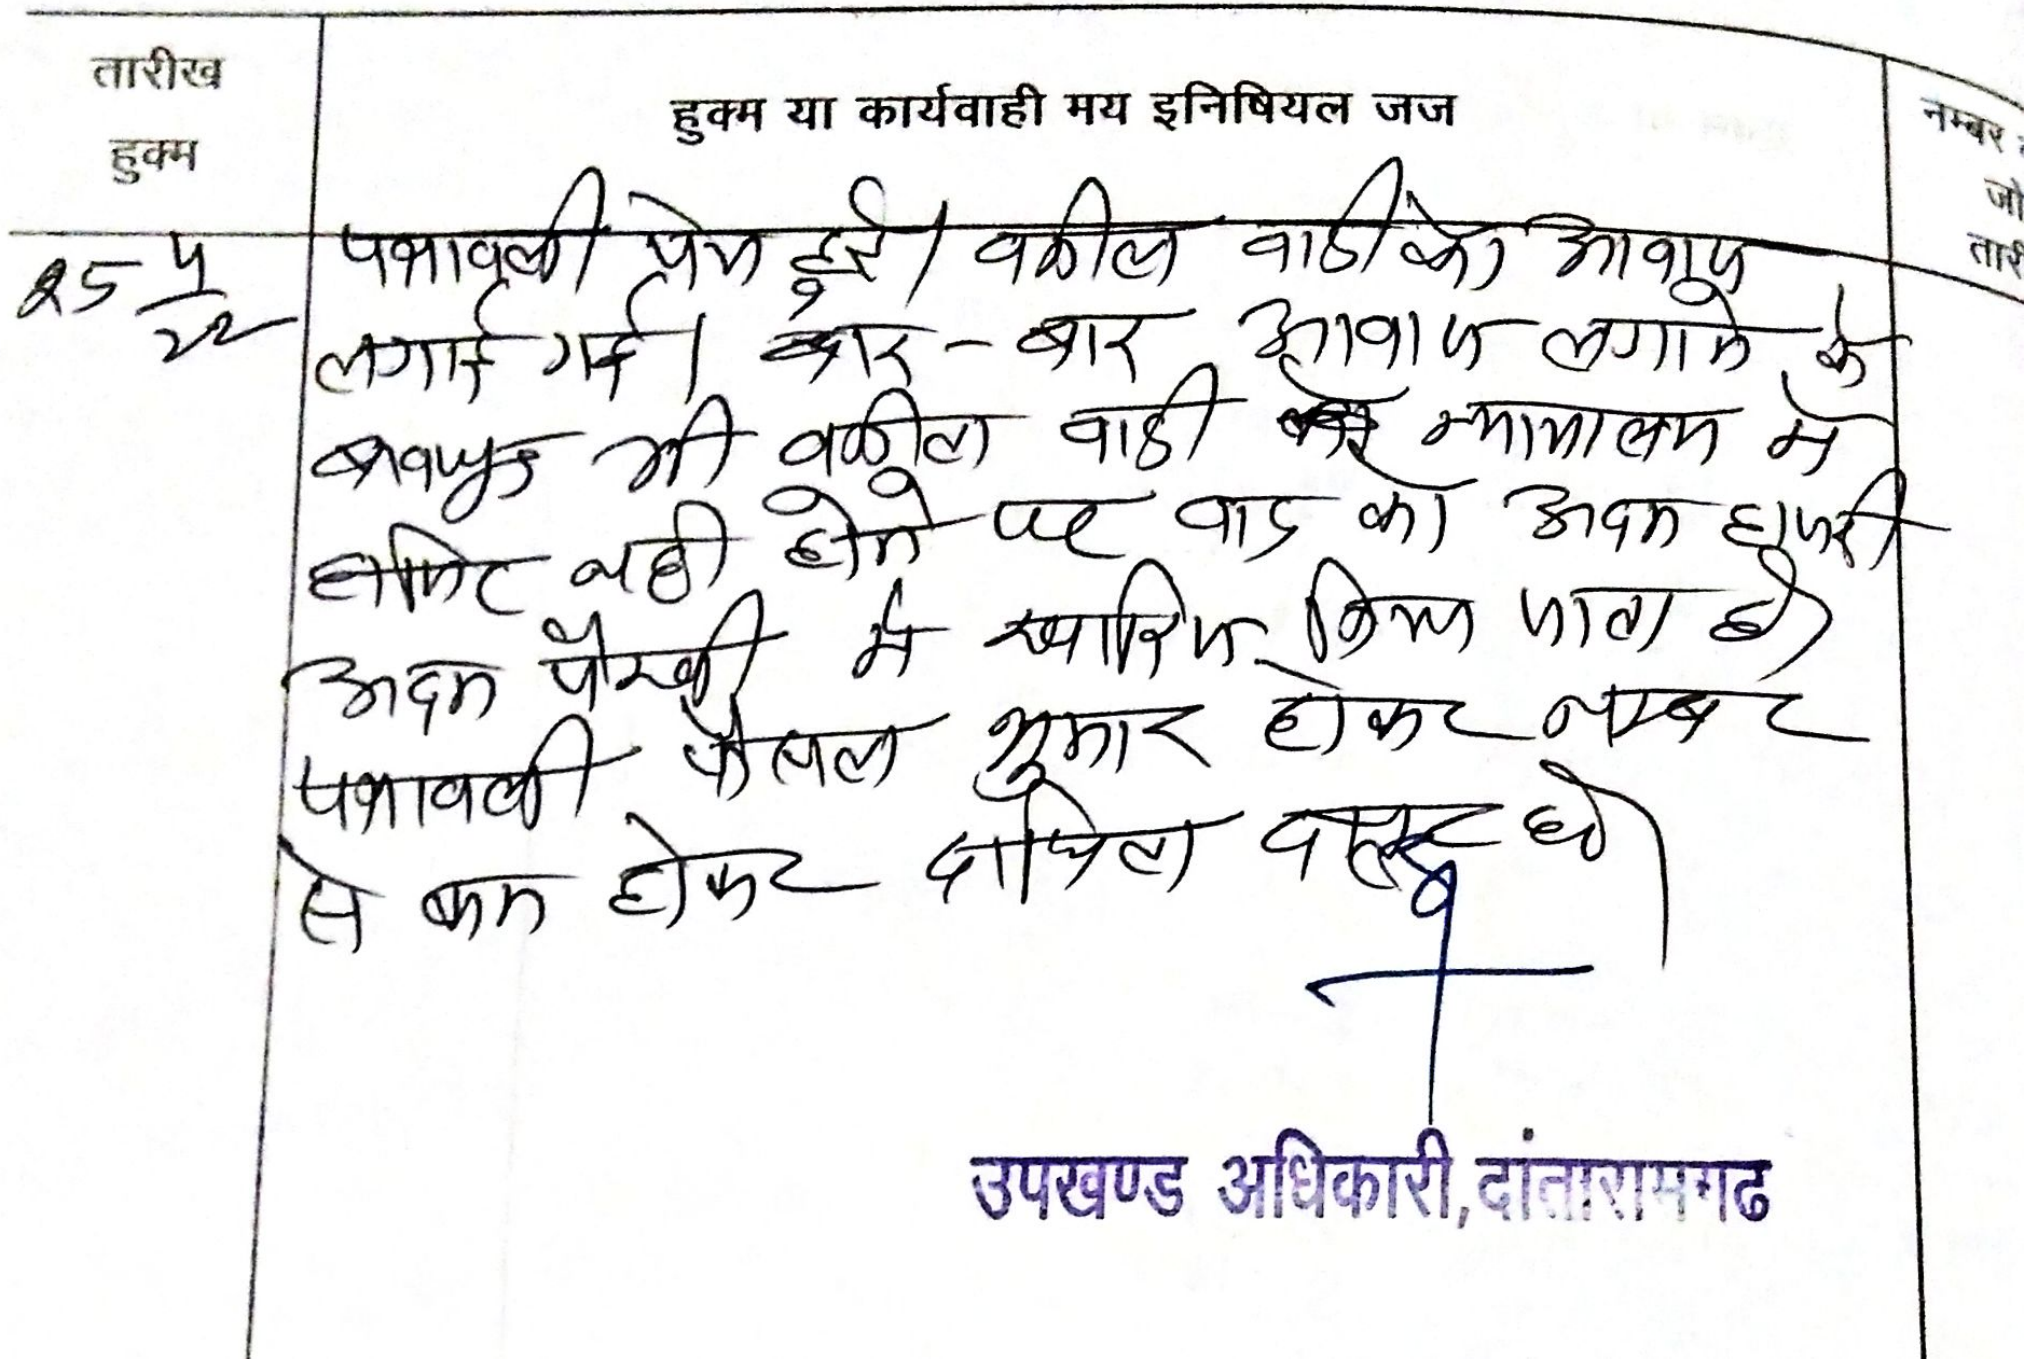 तारीख
हुक्म
हुक्म या कार्यवाही मय इनिषियल जज
नम्बर
जो
तारी
25 4/22
पत्रावली पेश हुई। वकील वादी को आवाज
लगाई गई। बार-बार आवाज लगाने के
बावजूद भी वकील वादी न्यायालय में
हाजिर नही होने पर वाद को अदम हाजरी
अदम पैरवी में खारिज किया जाता है।
पत्रावली फैसल शुमार होकर नम्बर
से कम होकर दाखिल दफ्तर हो।
उपखण्ड अधिकारी, दांतारामगढ